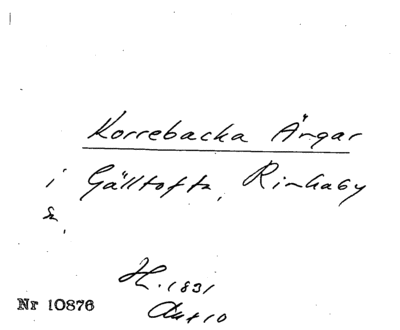 Korrebacka Ängar
i Gälltofta, Rinkaby
sn.
H. 1831
Akt 10
Nr 10876